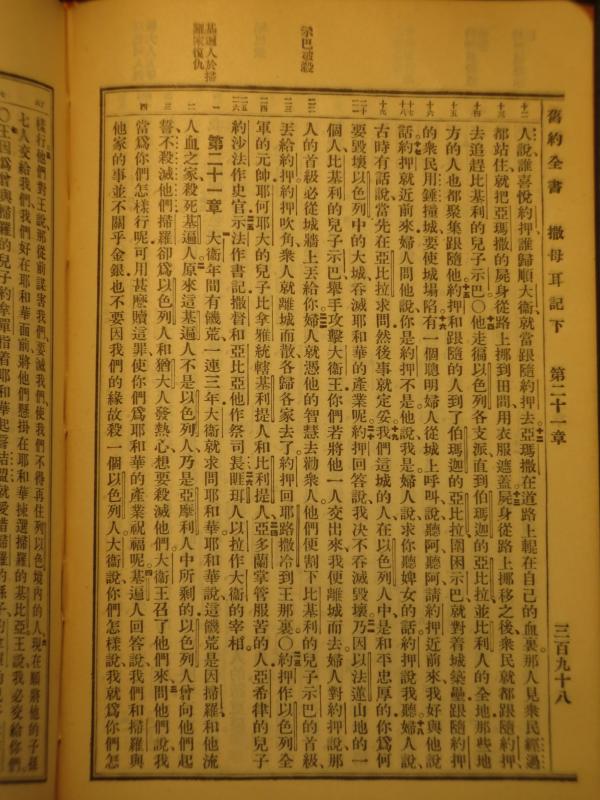 舊約全書 撒母耳記下 第二十一章 三百九十八
示巴被殺
基遍人於掃
羅家復仇
人說、誰喜悅約押、誰歸順大衛、就當跟隨約押去。亞瑪撒在道路上輥在自己的血裏。那人見衆民經過
都站住、就把亞瑪撒的屍身從路上挪到田間、用衣服遮蓋。屍身從路上挪移之後、衆民就都跟隨約押、
去追赶比基利的兒子示巴。〇他走徧以色列各支派、直到伯瑪迦的亞比拉、並比利人的全地、那些地
方的人也都聚集跟隨他。約押和跟隨的人到了伯瑪迦的亞比拉、圍困示巴、就對着城築壘、跟隨約押
的衆民用錘撞城、要使城塌陷。有一個聰明婦人從城上呼叫說、聽阿、聽阿、請約押近前來、我好與他說
話。約押就近前來、婦人問他說、你是約押不是。他說、我是。婦人說、求你聽婢女的話。約押說、我聽。婦人說、
古時有話說、當先在亞比拉求問、然後事就定妥。我們這城的人、在以色列人中是和平忠厚的、你爲何
要毀壞以色列中的大城、吞滅耶和華的產業呢。約押回答說、我決不吞滅毀壞、乃因以法蓮山地的一
個人、比基利的兒子示巴、舉手攻擊大衛王、你們若將他一人交出來、我便離城而去。婦人對約押說、那
人的首級必從城牆上丟給你。婦人就憑他的智慧去勸衆人、他們便割下比基利的兒子示巴的首級、
丟給約押、約押吹角、衆人就離城而散、各歸各家去了。約押回耶路撒冷到王那裏。〇約押作以色列全
軍的元帥、耶何耶大的兒子比拿雅統轄基利提人和比利提人。亞多蘭掌管服苦的人、亞希律的兒子
約沙法作史官、示法作書記、撒督和亞比亞他作祭司長、睚珥人以拉作大衛的宰相。
第二十一章 大衛年間有饑荒、一連三年、大衛就求問耶和華、耶和華說、這饑荒是因掃羅和他流
人血之家、殺死基遍人。原來這基遍人不是以色列人、乃是亞摩利人中所剩的、以色列人曾向他們起
誓、不殺滅他們、掃羅卻爲以色列人和猶大人發熱心、想要殺滅他們。大衛王召了他們來、問他們說、我
當爲你們怎樣行呢、可用甚麼贖這罪、使你們爲耶和華的產業祝福呢。基遍人回答說、我們和掃羅與
他家的事、並不關乎金銀、也不要因我們的緣故殺一個以色列人。大衛說、你們怎樣說、我就爲你們怎
樣行。他們對王說、那從前謀害我們、要滅我們、使我們不得再住以色列境內的人、現在願將他的子孫
七人交給我們、我們好在耶和華面前、將他們懸掛在耶和華揀選掃羅的基比亞。王說、我必交給你們。
〇王因爲曾與掃羅的兒子約拿單指着耶和華起誓結盟、就愛惜掃羅的孫子